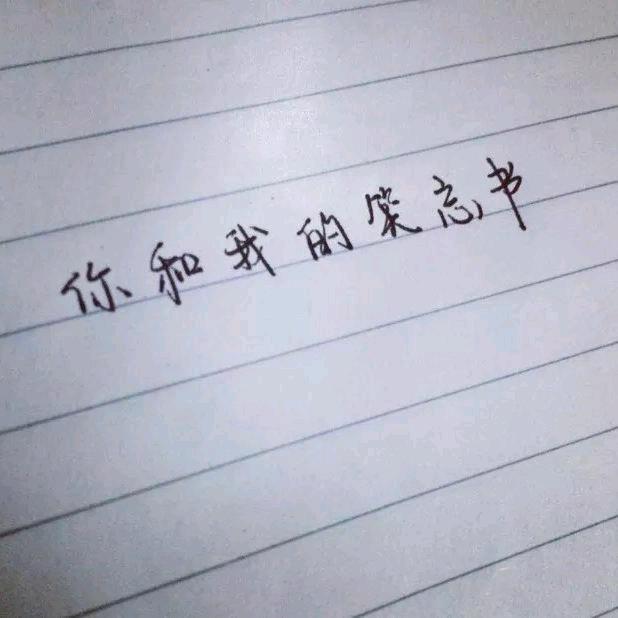 你和我的笑忘书